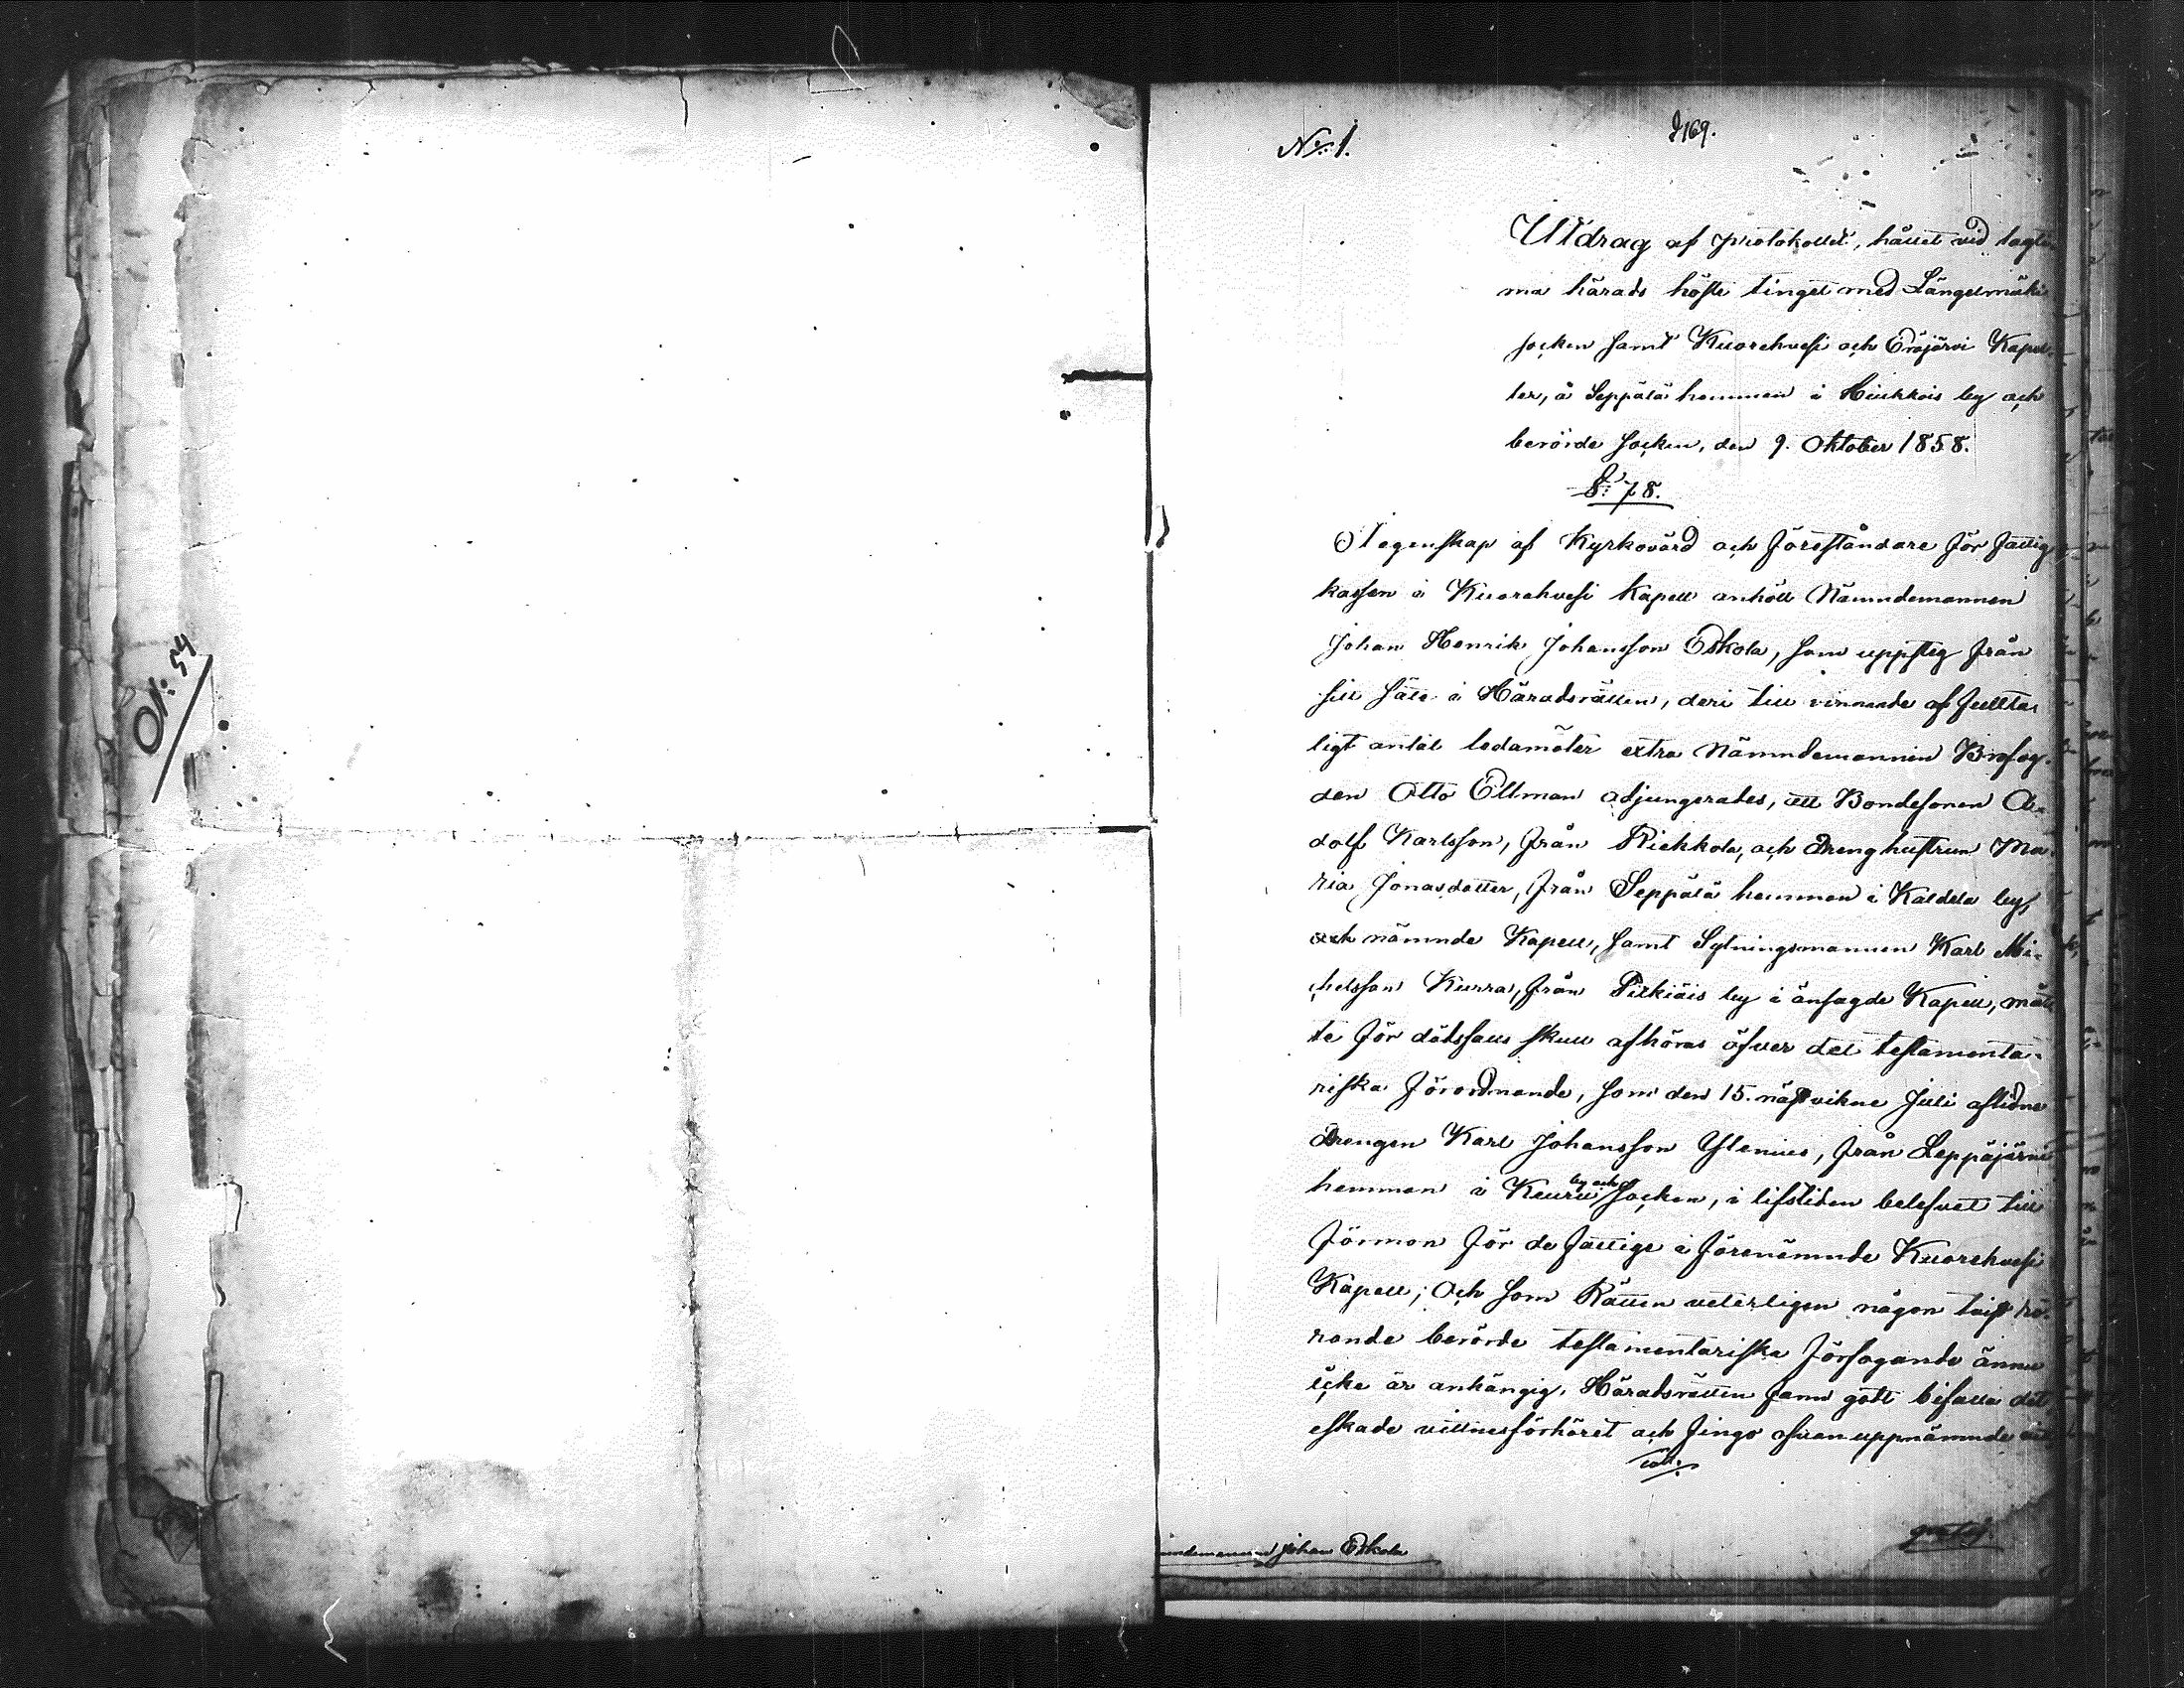 No 1.
169.
Ol: 54
Utdrag af protokollet, hållet vid lagti-
ma härads höste tinget med Längelmäki
socken samt Kuorehvesi och Eräjärvi Kapel-
ler, å Seppälä hemman i Hiukkois by och
berörde socken, den 9. Oktober 1858.
§: 78.
I egenskap af Kyrkovärd och föreståndare för fattig
kassan i Kuorehvesi Kapell anhöll Nämndemannen
Johan Henrik Johansson Eskola, som uppsteg från
sitt säte i Häradsrätten, deri till vinnande af fullta-
ligt antal ledamöter extra Nämndemannen Brofog-
den Otto Ellman adjungerades, att Bondesonen A-
dolf Karlsson, från Riehkola, och drenghustrun Ma-
ria Jonasdotter, från Seppälä hemman i Kaldela by
och nämnde Kapell, samt Sytningsmannen Karl Mi-
chelsson Kurra, från Pitkiäis by i änsagde Kapell, måt-
te för dödsfalls skull afhöras öfver det testamenta-
riska förordnande, som den 15. nästvikne Juli aflidne
drengen Karl Johansson Ylenius, från Leppäjärvi
hemman i Keuru by och Socken, i lifstiden belefvat till
förmon för de fattige i förenämnde Kuorehvesi
Kapell; Och som Rätten veterligen någon tvist rö-
rande berörde testamentariska förfogande ännu
icke är anhängig, Häradsrätten fann godt bifalla det
eskade vittnesförhöret och fingo ofvanuppnämnde
ndemannen Johan Eskola
gratis